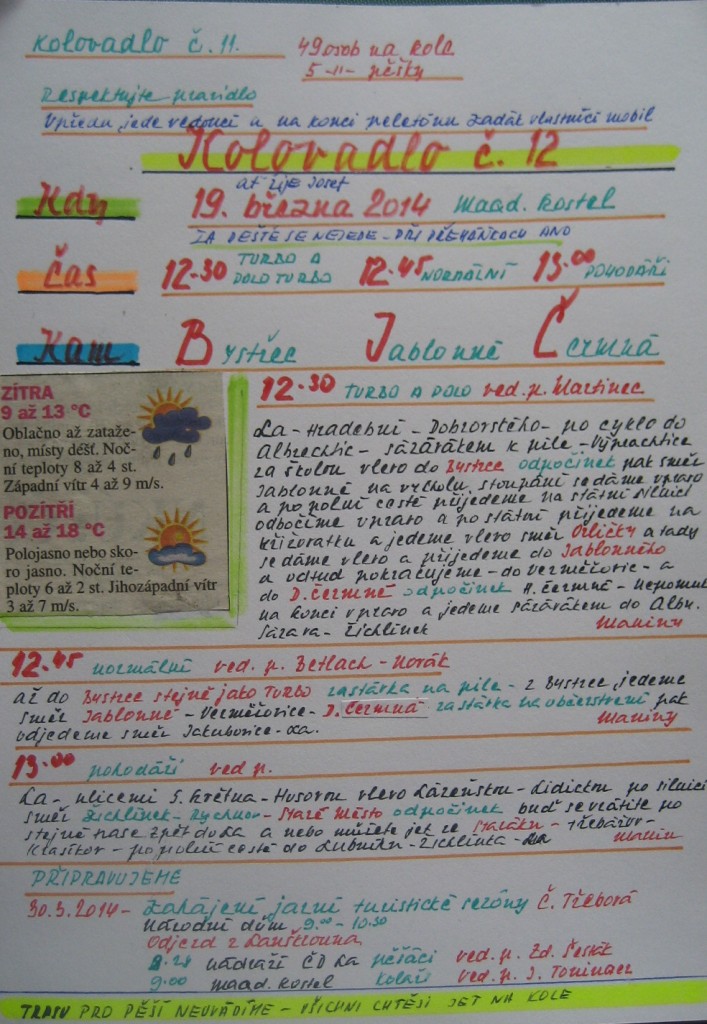 Kolovadlo č. 11.
49 osob na kole
5 -11- pěšky
Respektujte pravidlo
Vpředu jede vedoucí a na konci pelotónu zadák vlastnící mobil
Kolovadlo č. 12
ať žije Josef
Kdy 19. března 2014 Maad. kostel
ZA DEŠTĚ SE NEJEDE - PŘI PŘEHÁŇKÁCH ANO
Čas 12.30 TURBO A POLOTURBO 12.45 NORMÁLNÍ 13.00 POHODÁŘI
Kam Bystřec Jablonné Čermná
ZÍTRA
9 až 13 °C
Oblačno až zataže-
no, místy déšť. Noč-
ní teploty 8 až 4 st.
Západní vítr 4 až 9 m/s.
POZÍTŘÍ
14 až 18 °C
Polojasno nebo sko-
ro jasno. Noční te-
ploty 6 až 2 st. Jihozápadní vítr
3 až 7 m/s.
12.30 TURBO A POLO ved. p. Martinec
La - Hradební - Dobrovského - po cyklo do
Albrechtic - sázavákem k pile - Výprachtice
za školou vlevo do Bystřec odpočinek pak směr
Jablonné na vrcholu stoupání se dáme vpravo
a po polní cestě přijedeme na státní silnici
odbočíme vpravo a po státní přijedeme na
křižovatku a jedeme vlevo směr Orličky a tady
se dáme vlevo a přijedeme do Jablonného
a odtud pokračujeme - do Verměřovic - a
do D. Čermné odpočinek H. Čermné - Nepomuk
na konci vpravo a jedeme sázavákem do Albr.
Sázava - Žichlínek Maniny
12.45 normální ved. p. Betlach - Novák
až do Bystřec stejně jako TURBO zastávka na pile - z Bystřec jedeme
směr Jablonné - Verměřovice - D. Čermná zastávka na občerstvení pak
odjedeme směr Jakubovice - La. Maniny
13.00 pohodáři ved p.
La - ulicemi 5. května - Husovou vlevo Lázeňskou - Lidickou po silnici
směr Žichlínek - Rychnov - Staré Město odpočinek buď se vrátíte po
stejné trase zpět do La a nebo můžete jet ze Staráku - Třebařov -
Krasíkov - po polní cestě do Lubníku - Žichlínka - La Manin
PŘIPRAVUJEME
30.3.2014 - Zahájení jarní turistické sezóny Č. Třebová
Národní dům 9.00 - 10.30
Odjezd z Lanškrouna
8.28 nádraží ČD La pěšáci ved. p. Zd. Šesták
9.00 maad. kostel kolaři ved. p. J. Tominacz
TRASU PRO PĚŠÍ NEUVÁDÍME - VŠICHNI CHTĚJÍ JET NA KOLE